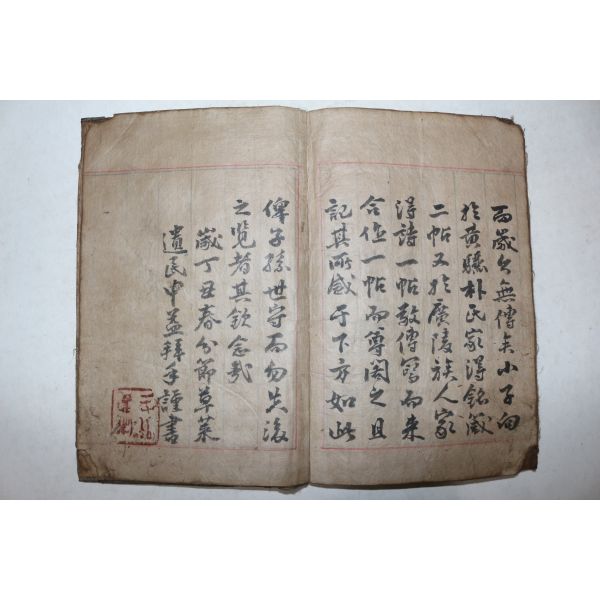 而歲久無傳矣小子向
於黃驪朴氏家得銘箴
二帖又於廣陵族人家
得詩一帖敬傳寫而來
合作一帖而尊閣之且
記其所感于下方如此
俾子孫世守而勿失後
之覽者其欽念哉
歲丁丑春分節草萊
遺民申益拜手謹書